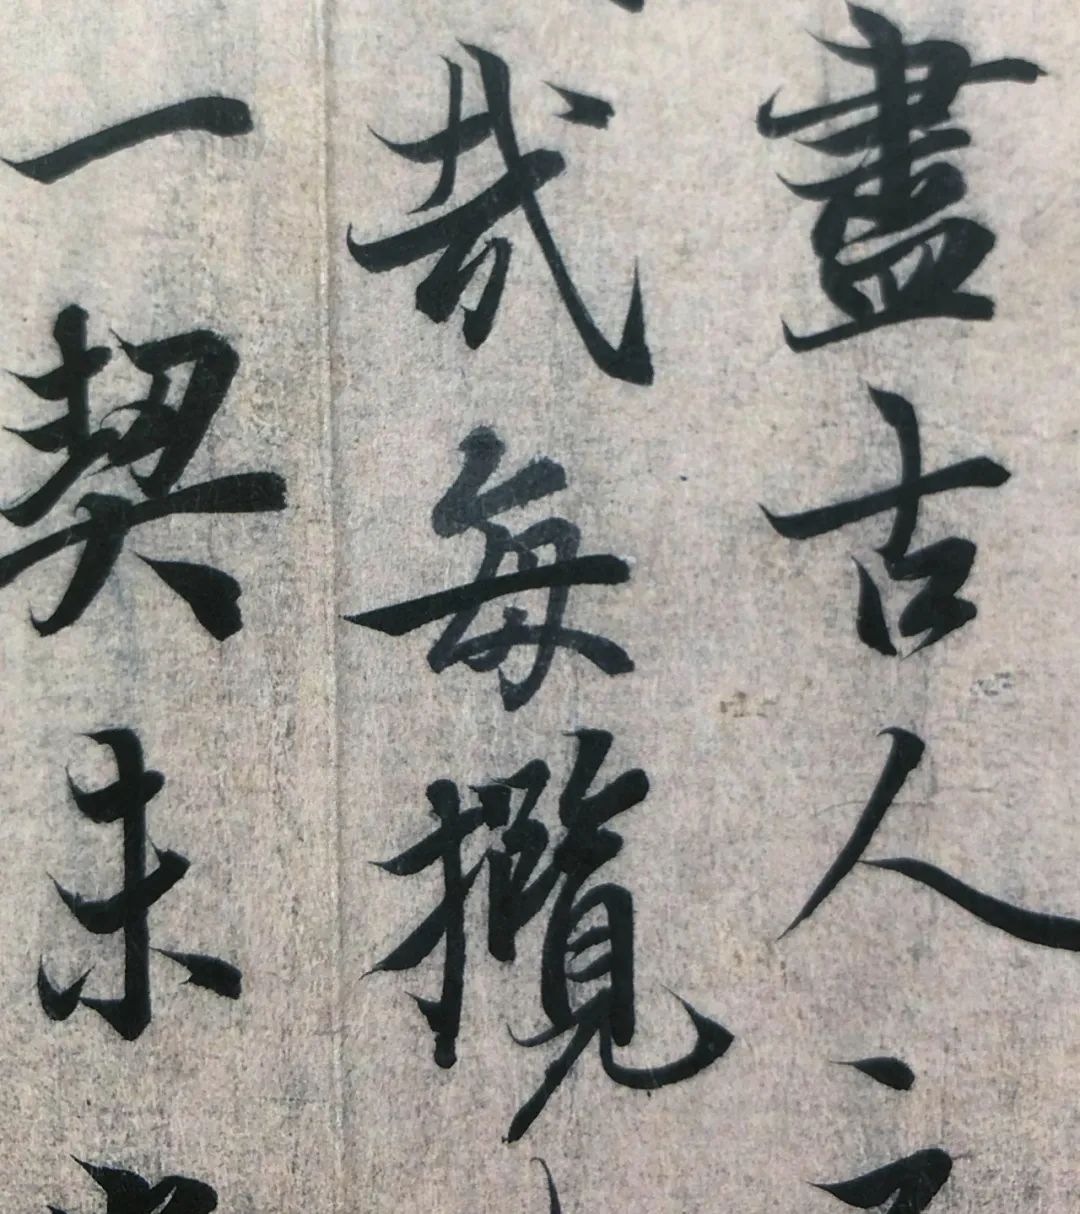 盡古人
哉每攬
一契未